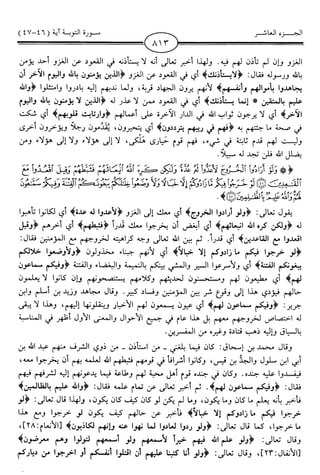 الجزء العاشر
٨١٣
سورة التوبة آية (٤٦-٤٧)
الغزو وإن لم تأذن لهم فيه. ولهذا أخبر تعالى أنه لا يستأذنه في القعود عن الغزو أحد يؤمن
بالله ورسوله فقال: ﴿لا يستأذنك﴾ أي في القعود عن الغزو ﴿الذين يؤمنون بالله واليوم الآخر أن
يجاهدوا بأموالهم وأنفسهم﴾ لأنهم يرون الجهاد قربة، ولما ندبهم إليه بادروا وامتثلوا ﴿والله
عليم بالمتقين * إنما يستأذنك﴾ أي في القعود ممن لا عذر له ﴿الذين لا يؤمنون بالله واليوم
الآخر﴾ أي لا يرجون ثواب الله في الدار الآخرة على أعمالهم ﴿وارتابت قلوبهم﴾ أي شكت
في صحة ما جئتهم به ﴿فهم في ريبهم يترددون﴾ أي يتحيرون، يُقدِّمون رجلاً ويؤخرون أخرى
وليست لهم قدم ثابتة في شيء، فهم قوم حيارى هَلْكى، لا إلى هؤلاء ولا إلى هؤلاء ومن
يضلل الله فلن تجد له سبيلاً.
﴿۞ وَلَوْ أَرَادُوا الْخُرُوجَ لَأَعَدُّوا لَهُ عُدَّةً وَلَٰكِن كَرِهَ اللَّهُ انبِعَاثَهُمْ فَثَبَّطَهُمْ وَقِيلَ اقْعُدُوا مَعَ
الْقَاعِدِينَ ﴿٤٦﴾ لَوْ خَرَجُوا فِيكُم مَّا زَادُوكُمْ إِلَّا خَبَالًا وَلَأَوْضَعُوا خِلَالَكُمْ يَبْغُونَكُمُ الْفِتْنَةَ وَفِيكُمْ سَمَّاعُونَ
لَهُمْ وَاللَّهُ عَلِيمٌ بِالظَّالِمِينَ ﴿٤٧﴾﴾
يقول تعالى: ﴿ولو أرادوا الخروج﴾ أي معك إلى الغزو ﴿لأعدوا له عدة﴾ أي لكانوا تأهبوا
له ﴿ولكن كره الله انبعاثهم﴾ أي أبغض أن يخرجوا معك قدراً ﴿فثبطهم﴾ أي أخرهم ﴿وقيل
اقعدوا مع القاعدين﴾ أي قدراً. ثم بين الله تعالى وجه كراهيته لخروجهم مع المؤمنين فقال:
﴿لو خرجوا فيكم ما زادوكم إلا خبالاً﴾ أي لأنهم جبناء مخذولون ﴿ولأوضعوا خلالكم
يبغونكم الفتنة﴾ أي ولأسرعوا السير والمشي بينكم بالنميمة والبغضاء والفتنة ﴿وفيكم سماعون
لهم﴾ أي مطيعون لهم ومستحسنون لحديثهم وكلامهم يستنصحونهم وإن كانوا لا يعلمون
حالهم فيؤدي هذا إلى وقوع شر بين المؤمنين وفساد كبير. وقال مجاهد وزيد بن أسلم وابن
جرير: ﴿وفيكم سماعون لهم﴾ أي عيون يسمعون لهم الأخبار وينقلونها إليهم، وهذا لا يبقى
له اختصاص لخروجهم معهم بل هذا عام في جميع الأحوال والمعنى الأول أظهر في المناسبة
بالسياق وإليه ذهب قتادة وغيره من المفسرين.
وقال محمد بن إسحاق: كان فيما بلغني ـ من استأذن ـ من ذوي الشرف منهم عبد الله بن
أبي ابن سلول والجدُّ بن قيس، وكانوا أشرافاً في قومهم فثبطهم الله لعلمه بهم أن يخرجوا معه،
فيفسدوا عليه جنده. وكان في جنده قوم أهل محبة لهم وطاعة فيما يدعونهم إليه لشرفهم فيهم
فقال: ﴿وفيكم سماعون لهم﴾. ثم أخبر تعالى عن تمام علمه فقال: ﴿والله عليم بالظالمين﴾
فأخبر بأنه يعلم ما كان وما يكون، وما لم يكن لو كان كيف كان يكون، ولهذا قال تعالى: ﴿لو
خرجوا فيكم ما زادوكم إلا خبالاً﴾ فأخبر عن حالهم كيف يكون لو خرجوا ومع هذا
ما خرجوا، كما قال تعالى: ﴿ولو ردوا لعادوا لما نهوا عنه وإنهم لكاذبون﴾ [الأنعام: ٢٨]،
وقال تعالى: ﴿ولو علم الله فيهم خيراً لأسمعهم ولو أسمعهم لتولوا وهم معرضون﴾
[الأنفال: ٢٣]، وقال تعالى: ﴿ولو أنا كتبنا عليهم أن اقتلوا أنفسكم أو اخرجوا من دياركم